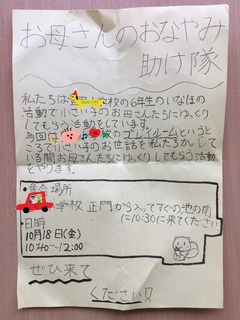 お母さんのおなやみ
助け隊
私たちは 学校の6年生のいなほの
活動で小さい子のお母さんたちにゆっくり
してもらう活動をしています。
今回は のプレイルームというと
ころで小さい子のお世話を私たちがして
いる間お母さんたちにゆっくりしてもらう活動
をやります。
・集合場所
学校 正門から入ってすぐの池の前
に10:30に来てください
・日時
10月18日(金)
10:40~12:00
ぜひ来て
ください!!